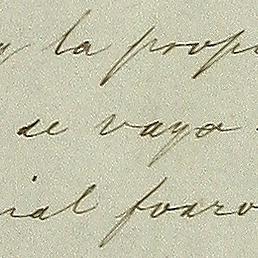 y la prop
se vaya
ial forro